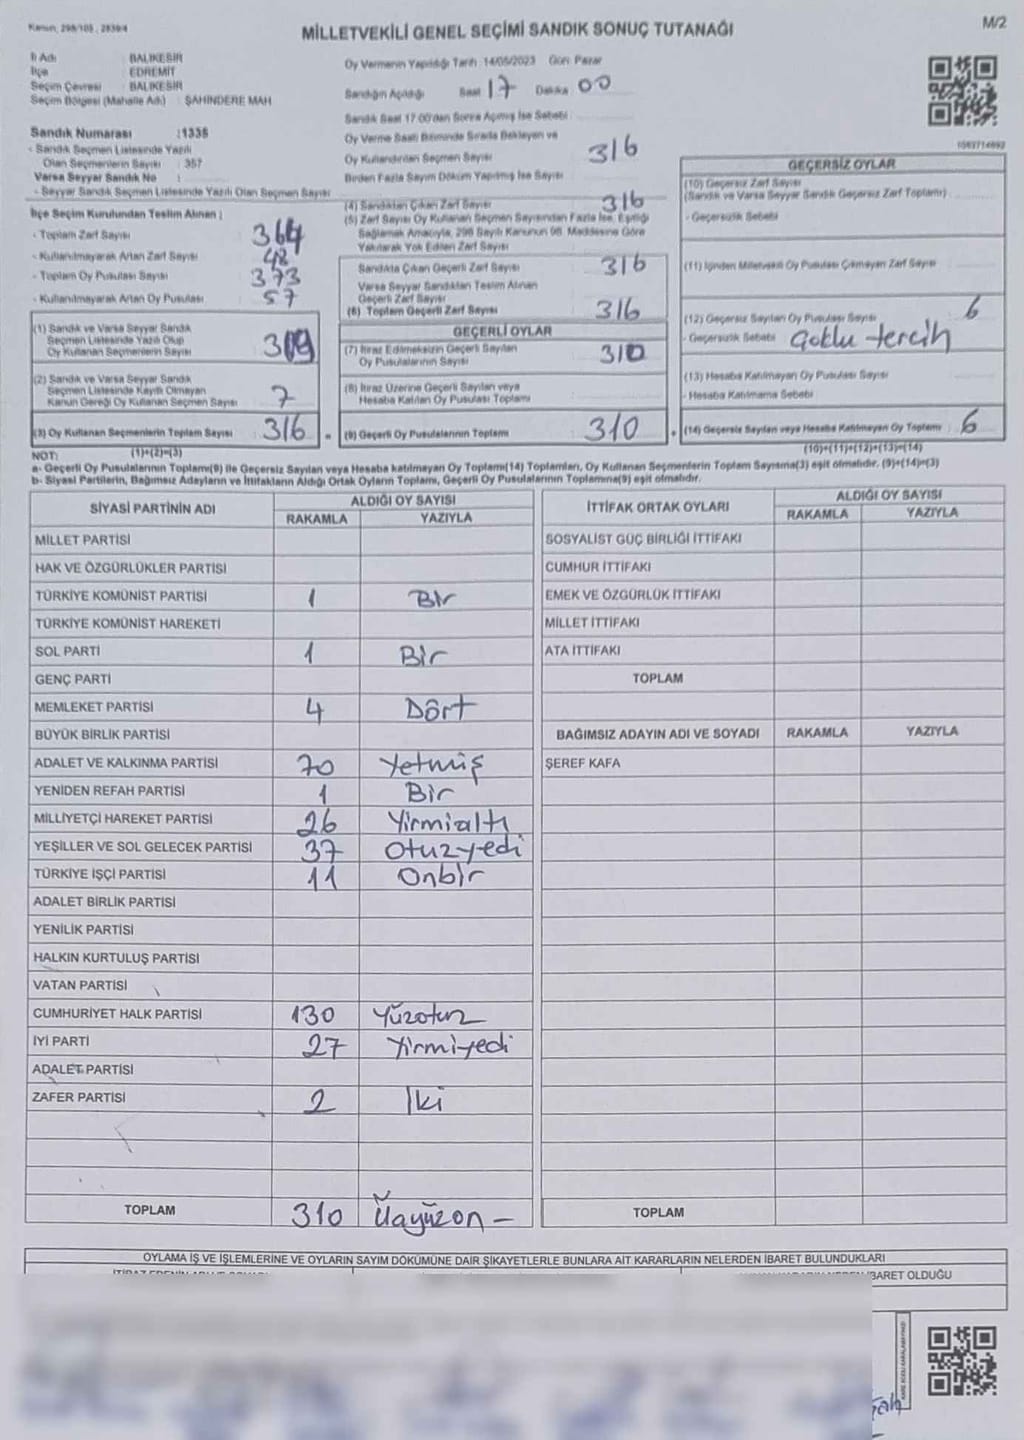 Kanun: 298/105 , 2839/4
MİLLETVEKİLİ GENEL SEÇİMİ SANDIK SONUÇ TUTANAĞI
M/2
İl Adı : BALIKESİR
İlçe : EDREMİT
Seçim Çevresi : BALIKESİR
Seçim Bölgesi (Mahalle Adı) : ŞAHİNDERE MAH
Sandık Numarası :1335
- Sandık Seçmen Listesinde Yazılı
Olan Seçmenlerin Sayısı : 357
Varsa Seyyar Sandık No :
- Seyyar Sandık Seçmen Listesinde Yazılı Olan Seçmen Sayısı
İlçe Seçim Kurulundan Teslim Alınan ;
- Toplam Zarf Sayısı 364
- Kullanılmayarak Artan Zarf Sayısı 48
- Toplam Oy Pusulası Sayısı 373
- Kullanılmayarak Artan Oy Pusulası 57
(1) Sandık ve Varsa Seyyar Sandık
Seçmen Listesinde Yazılı Olup
Oy Kullanan Seçmenlerin Sayısı 309
(2) Sandık ve Varsa Seyyar Sandık
Seçmen Listesinde Kayıtlı Olmayan
Kanun Gereği Oy Kullanan Seçmen Sayısı 7
(3) Oy Kullanan Seçmenlerin Toplam Sayısı 316 =
(1)+(2)=(3)
Oy Vermenin Yapıldığı Tarih :14/05/2023 Gün: Pazar
Sandığın Açıldığı Saat 17 Dakika 00
Sandık Saat 17:00'dan Sonra Açılmış İse Sebebi :
Oy Verme Saati Bitiminde Sırada Bekleyen ve
Oy Kullandırılan Seçmen Sayısı 316
Birden Fazla Sayım Döküm Yapılmış İse Sayısı
(4) Sandıktan Çıkan Zarf Sayısı 316
(5) Zarf Sayısı Oy Kullanan Seçmen Sayısından Fazla İse, Eşitliği
Sağlamak Amacıyla, 298 Sayılı Kanunun 98. Maddesine Göre
Yakılarak Yok Edilen Zarf Sayısı
Sandıkta Çıkan Geçerli Zarf Sayısı 316
Varsa Seyyar Sandıktan Teslim Alınan
Geçerli Zarf Sayısı
(6) Toplam Geçerli Zarf Sayısı 316
GEÇERLİ OYLAR
(7) İtiraz Edilmeksizin Geçerli Sayılan
Oy Pusulalarının Sayısı 310
(8) İtiraz Üzerine Geçerli Sayılan veya
Hesaba Katılan Oy Pusulası Toplamı
(9) Geçerli Oy Pusulalarının Toplamı 310 +
1083714692
GEÇERSİZ OYLAR
(10) Geçersiz Zarf Sayısı
(Sandık ve Varsa Seyyar Sandık Geçersiz Zarf Toplamı)
- Geçersizlik Sebebi
(11) İçinden Milletvekili Oy Pusulası Çıkmayan Zarf Sayısı
(12) Geçersiz Sayılan Oy Pusulası Sayısı 6
- Geçersizlik Sebebi Çoklu tercih
(13) Hesaba Katılmayan Oy Pusulası Sayısı
- Hesaba Katılmama Sebebi
(14) Geçersiz Sayılan veya Hesaba Katılmayan Oy Toplamı 6
(10)+(11)+(12)+(13)=(14)
NOT:
a- Geçerli Oy Pusulalarının Toplamı(9) ile Geçersiz Sayılan veya Hesaba katılmayan Oy Toplamı(14) Toplamları, Oy Kullanan Seçmenlerin Toplam Sayısına(3) eşit olmalıdır. (9)+(14)=(3)
b- Siyasi Partilerin, Bağımsız Adayların ve İttifakların Aldığı Ortak Oyların Toplamı, Geçerli Oy Pusulalarının Toplamına(9) eşit olmalıdır.
SİYASİ PARTİNİN ADI ALDIĞI OY SAYISI
RAKAMLA YAZIYLA
MİLLET PARTİSİ
HAK VE ÖZGÜRLÜKLER PARTİSİ
TÜRKİYE KOMÜNİST PARTİSİ 1 Bir
TÜRKİYE KOMÜNİST HAREKETİ
SOL PARTİ 1 Bir
GENÇ PARTİ
MEMLEKET PARTİSİ 4 Dört
BÜYÜK BİRLİK PARTİSİ
ADALET VE KALKINMA PARTİSİ 70 Yetmiş
YENİDEN REFAH PARTİSİ 1 Bir
MİLLİYETÇİ HAREKET PARTİSİ 26 Yirmialtı
YEŞİLLER VE SOL GELECEK PARTİSİ 37 Otuzyedi
TÜRKİYE İŞÇİ PARTİSİ 11 Onbir
ADALET BİRLİK PARTİSİ
YENİLİK PARTİSİ
HALKIN KURTULUŞ PARTİSİ
VATAN PARTİSİ
CUMHURİYET HALK PARTİSİ 130 Yüzotuz
İYİ PARTİ 27 Yirmiyedi
ADALET PARTİSİ
ZAFER PARTİSİ 2 İki
TOPLAM 310 Üçyüzon -
İTTİFAK ORTAK OYLARI ALDIĞI OY SAYISI
RAKAMLA YAZIYLA
SOSYALİST GÜÇ BİRLİĞİ İTTİFAKI
CUMHUR İTTİFAKI
EMEK VE ÖZGÜRLÜK İTTİFAKI
MİLLET İTTİFAKI
ATA İTTİFAKI
TOPLAM
BAĞIMSIZ ADAYIN ADI VE SOYADI RAKAMLA YAZIYLA
ŞEREF KAFA
TOPLAM
OYLAMA İŞ VE İŞLEMLERİNE VE OYLARIN SAYIM DÖKÜMÜNE DAİR ŞİKAYETLERLE BUNLARA AİT KARARLARIN NELERDEN İBARET BULUNDUKLARI
İBARET OLDUĞU